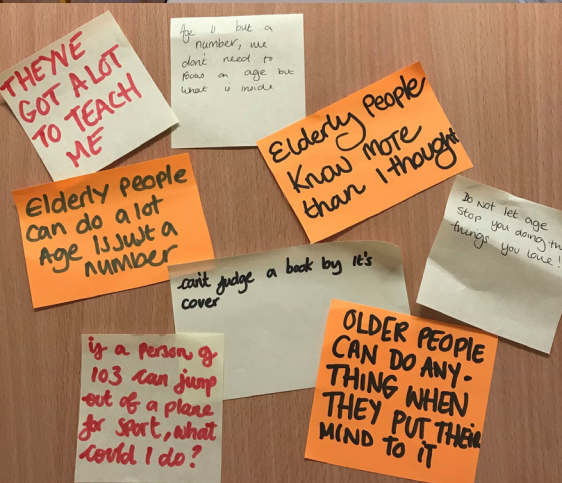 THEY'VE
GOT A LOT
TO TEACH
ME
Age is but a
number, we
don't need to
focus on age but
what is inside
Elderly People
Know more
than I thought
Elderly people
can do a lot
Age Is Just a
number
Do not let age
stop you doing th
things you love!
can't judge a book by it's
cover
is a person of
103 can jump
out of a plane
for sport, what
could I do?
OLDER PEOPLE
CAN DO ANY-
THING WHEN
THEY PUT THEIR
MIND TO IT